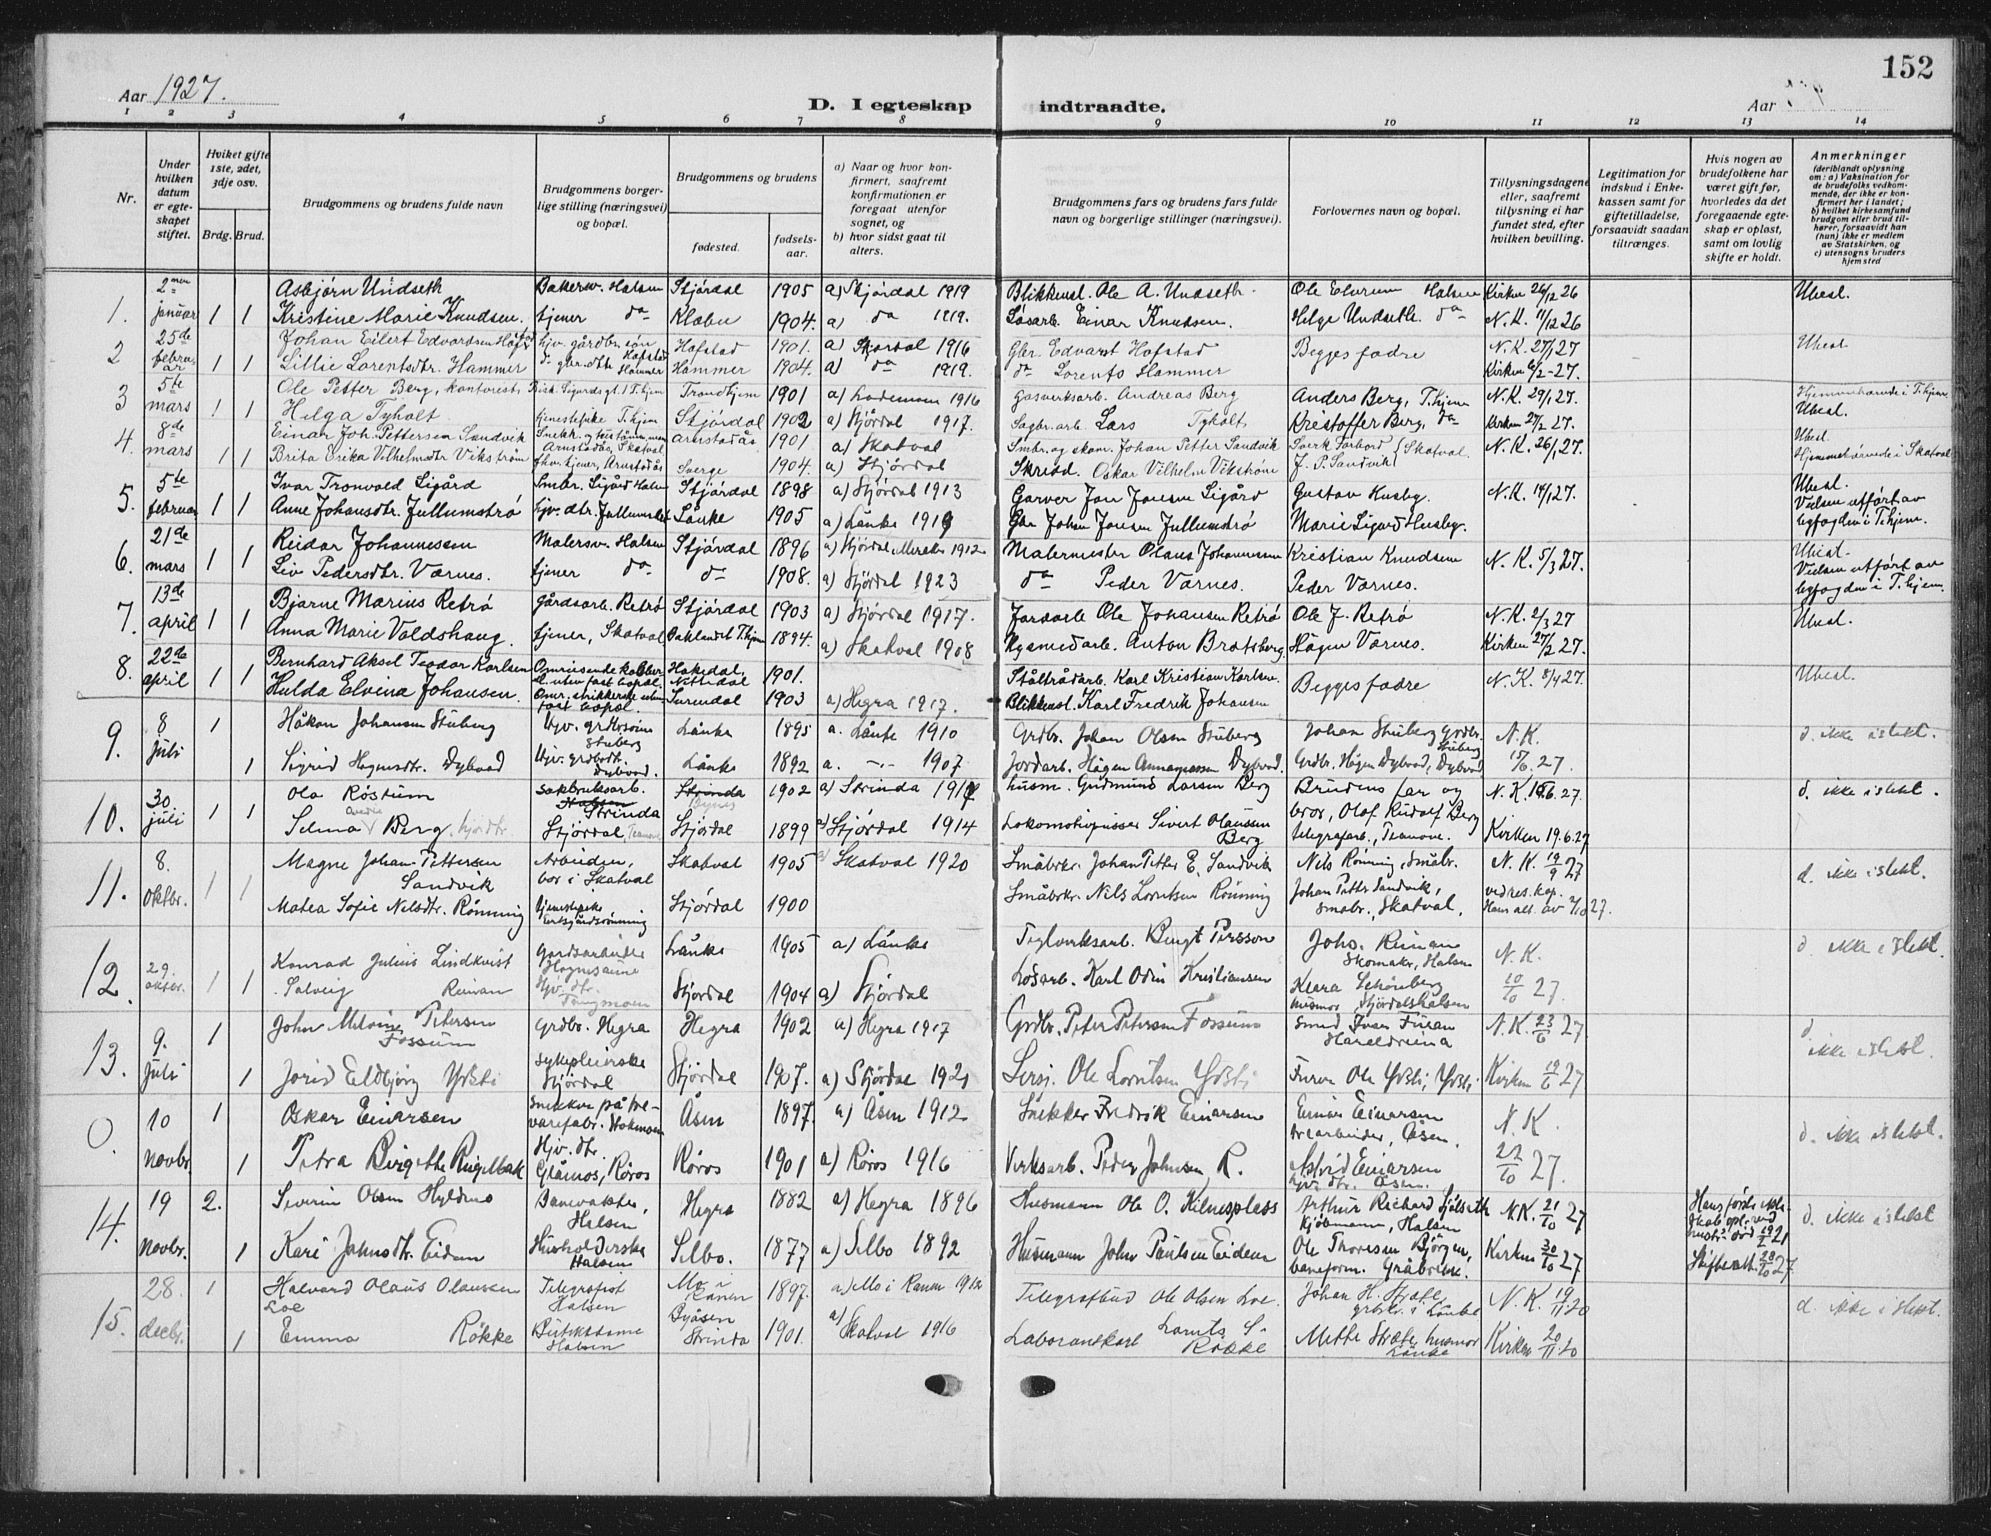 152
Aar 1927.
D. I egteskap indtraadte.
Aar
1 2 3 4 5 6 7 8 9 10 11 12 13 14
Nr.
Under hvilken datum er egteskapet stiftet.
Hviket gifte 1ste, 2det, 3dje osv.
Brdg. Brud.
Brudgommens og brudens fulde navn
Brudgommens borgerlige stilling (næringsvei) og bopæl.
Brudgommens og brudens
fødested.
fødselsaar.
a) Naar og hvor konfirmert, saafremt konfirmationen er foregaat utenfor sognet, og
b) hvor sidst gaat til alters.
Brudgommens fars og brudens fars fulde navn og borgerlige stillinger (næringsvei).
Forlovernes navn og bopæl.
Tillysningsdagene eller, saafremt tillysning ei har fundet sted, efter hvilken bevilling.
Legitimation for indskud i Enkekassen samt for giftetilladelse, forsaavidt saadan tiltrænges.
Hvis nogen av brudefolkene har været gift før, hvorledes da det foregaaende egteskap er opløst, samt om lovlig skifte er holdt.
Anmerkninger (deriblandt oplysning om: a) Vaksination for de brudefolks vedkommende, der ikke er konfirmert her i landet; b) hvilket kirkesamfund brudgom eller brud tilhører, forsaavidt han (hun) ikke er medlem av Statskirken, og c) utensogns bruders hjemsted
1. 2den januar 1 Asbjørn Undseth Bakersv. Halsen Stjørdal 1905 a) Stjørdal 1919 Blikkensl. Ole A. Undseth Ole Elvrum Halsen Kirken 26/12 26 Ubesl.
1 Kristine Marie Knudsen. tjener do Klæbu 1904. a) do 1919. Løsarb. Einar Knudsen. Helge Undseth. do N.K. 11/12 26
2 25de februar 1 Johan Eilert Edvardsen Hofstad hjv. gårdbr. søn Hofstad 1901. a) Stjørdal 1916 Gbr. Edvard Hofstad Begges fædre N.K. 27/1 27 Ubesl.
1 Lillie Lorentsdtr. Hammer Hammer 1904. a) do 1919. do Lorents Hammer Kirken 6/2-27.
3 5te mars 1 Ole Petter Berg, kontorist, Trondhjem 1901 a) Lademoen 1916 Gasverksarb. Andreas Berg Anders Berg, T.hjem N.K. 29/1 27.
1 Helga Tyholt tjenestepike T.hjem Stjørdal 1902 a) Stjørdal 1917. Sagbr.arb. Lars Tyholt Kristoffer Berg, do Kirken 27/2 27. Ubesl.
4. 8de mars 1 Einar Joh. Pettersen Sandvik Arnstadås, Skatval Arnstadås 1901 a) Skatval Smbr. og skom. Johan Petter Sandvik N.K. 26/1 27. Ubesl.
1 Brita Erika Vilhelmsdtr Vikstrøm Sverge 1904. a) Stjørdal Skredd. Oskar Vilhelm Vikstrøm J. P. Sandvik Skatval. Hjemmehørende i Skatval
5. 5te februar 1 Ivar Tronvold Ligård Smbr. Ligård Halsen Stjørdal 1898 a) Stjørdal 1913 Garver Jon Jonsen Ligård Gustav Husby. N.K. 14/1 27. Ubesl.
1 Anne Johansdtr. Jullumstrø hjv. dtr. Jullumstrø Lånke 1905 a) Lånke 1919 Gbr Johan Jonsen Jullumstrø Marie Ligård Husby. Vielsen utført av byfogden i T.hjem.
6. 21de mars 1 Reidar Johannessen Malersv. Halsen Stjørdal 1896 a) Stjørdal, Meraker 1912 Malermester Olaus Johannessen Kristian Knudsen N.K. 5/3 27. Ubesl.
1 Liv Pedersdtr. Værnes. tjener do do 1908. a) Stjørdal 1923 do Peder Værnes. Peder Værnes. Vielsen utført av byfogden i T.hjem.
7. 13de april 1 Bjarne Marius Retrø Gårdsarb. Retrø Stjørdal 1903 a) Stjørdal 1917. Jordarb Ole Johansen Retrø Ole J. Retrø N.K. 2/3 27 Ubesl.
1 Anna Marie Voldshaug. tjener, Skatval Baklandet T.hjem 1894. a) Skatval 1908 Anton Bratsberg. Hågen Værnes. Kirken 27/2 27.
8. 22de april 1 Bernhard Aksel Teodor Karlsen Omreisende Hakedal, Nittedal 1901. Ståltrådarb. Karl Kristian Karlsen Begges fædre N.K. 8/4 27. Ubesl.
1 Hulda Elvina Johansen. Surendal 1903 a) Hegra 1917. Blikkensl. Karl Fredrik Johansen
9. 8 juli 1 Håkon Johansen Stuberg Hjv. grdbrsøn Stuberg Lånke 1895 a. Lånke 1910 Grdbr. Johan Olsen Stuberg Johan Stuberg grdbr. Stuberg N.K. d. ikke i slekt.
1 Sigrid Hagensdtr. Dybvad Hjv. grdbrdt. Dybvad. Lånke 1892 a. -"- 1907. Jordarb. Hågen Dybvad. Grdbr. Hågen Dybvad, Dybvad 27.
10. 30 juli 1 Ola Røstum sakbruksarb. Halsen Strinda Strinda 1902 a) Strinda Husm. Gudmund Larsen Berg Brudens far og N.K. d. ikke i slekt.
1 Selma Berg Stjørdal, Stjørdal 1899 a) Stjørdal 1914 Lokomotivpusser Sivert Olaussen Berg bror, Olaf Rudolf Berg Kirken 19.6.27
11. 8. oktbr. 1 Magne Johan Pettersen Sandvik Arbeider, bor i Skatval Skatval 1905 a) Skatval 1920 Småbrkr. Johan Petter E. Sandvik Nils Rønning, Småbr. N.K. 19/9 27 d. ikke i slekt.
1 Matea Sofie Nilsdtr. Rønning Stjørdal 1900 Småbrkr. Nils Lorntsen Rønning Johan Petter Sandvik, Smabr., Skatval. ved res. kap.
12. 29. oktbr. 1 Konrad Julius Lindkvist Gardsarbeider Lånke 1905 a) Lånke Teglverksarb. Bengt Persson Johs. Reinan Skomaker, Halsen N.K. d ikke i slekt.
1 Solveig Reinan Hjv. dtr. Tangmoen Stjørdal 1904 a) Stjørdal Løsarb. Karl Odin Kristiansen Klara Schønberg husmor Stjørdalshalsen 20/10 27.
13. 9. juli 1 John Melvin Petersen Fossum Grdbr. Hegra Hegra 1902 a) Hegra 1917 Grdbr. Peter Petersen Fossum Smed Ivar Furan Haraldreina N.K. 23/6 27 d. ikke i slekt.
1 Jorid Eldbjørg Ydsti Sykepleierske Stjørdal Stjørdal 1907. a) Stjørdal 1921 Sersj. Ole Lorntsen Ydsti Furer Ole Ydsti, Ydsti Kirken 19/6 27
0. 10 novbr. 1 Oskar Einarsen Snekker på trevarefabr. Hommelvik Åsen 1897. a) Åsen 1912 Snekker Fredrik Einarsen Einar Einarsen trearbeider, Åsen. N.K. d. ikke i slekt.
1 Petra Birgithe Ringelbak Hjv. dtr. Glåmos, Røros Røros 1901 a) Røros 1916 Verksarb. Peder Johnsen R. Astrid Einarsen hjv. dtr. Åsen. 22/10 27.
14. 19 novbr. 2. Severin Olsen Hyldmo Banevokter, Halsen Hegra 1882 a) Hegra 1896 Husmann Ole O. Kilnesplass Arthur Richard Sjølseth kjøbmann, Halsen N.K. 21/10 27 d. ikke i slekt
1 Kari Johnsdtr. Eidem Husholderske Halsen Selbo. 1877 a) Selbo 1892 Husmann John Paulsen Eidem Ole Thoresen Bjørgen, baneform. Gråbrekk. Kirken 30/10 27 Skifteatt. 28/10 27.
15. 28. decbr. 1 Halvard Olaus Olaussen Loe Telegrafist Halsen Mo i Ranen 1897. a) Mo i Ranen 1912 Telegrafbud Ole Olsen Loe. Johan H. Stræte grbkr. i Lånke N.K. 19/11.20 d. ikke i slekt.
1 Emma Røkke Butikkdame Halsen Byåsen Strinda 1901. a) Skatval 1916 Laboranskarl Lornts S. Røkke Mette Stræte husmor Lånke Kirken 20/11.20